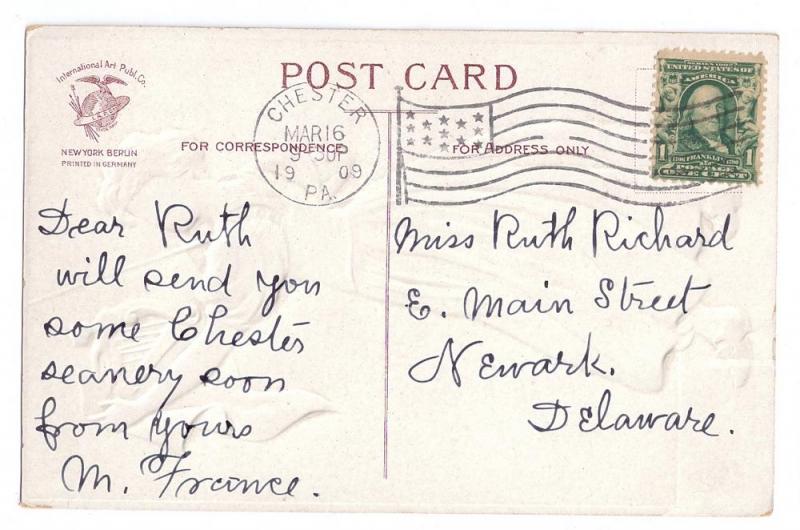 International Art Publ. Co.
NEW YORK BERLIN
PRINTED IN GERMANY
POST CARD
FOR CORRESPONDENCE
FOR ADDRESS ONLY
CHESTER
MAR 16
9-30P
1909
PA.
SERIES 1902
UNITED STATES OF
AMERICA
1 FRANKLIN 1
POSTAGE
ONE CENT
Dear Ruth
will send you
some Chester
seanery soon
from yours
M. France.
Miss Ruth Richard
E. Main Street
Newark.
Delaware.